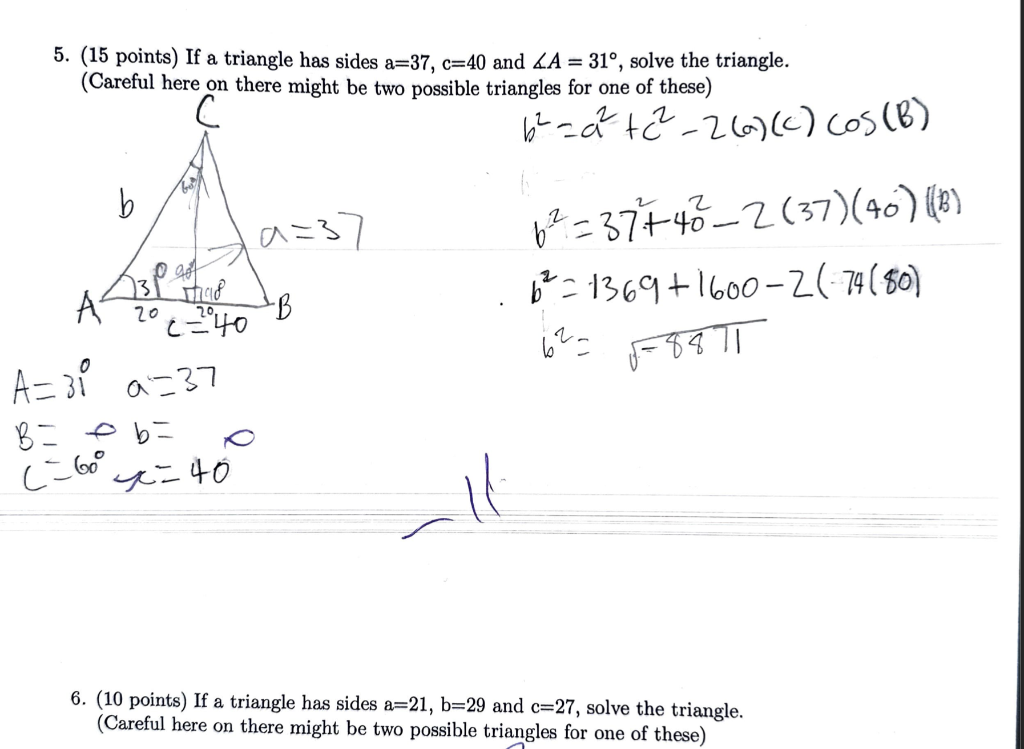 5. (15 points) If a triangle has sides a=37, c=40 and ∡A = 31°, solve the triangle.
(Careful here on there might be two possible triangles for one of these)
C
b² = a² + c² - 2(a)(c) cos(B)
60°
b
a=37
b² = 37² + 40² - 2(37)(40)(B)
31° 90°
A
20
20
B
c=40
b² = 1369 + 1600 - 2(-74(80)
b² = √-8871
A=31° a=37
B= b=
C=60° c=40
-11
6. (10 points) If a triangle has sides a=21, b=29 and c=27, solve the triangle.
(Careful here on there might be two possible triangles for one of these)